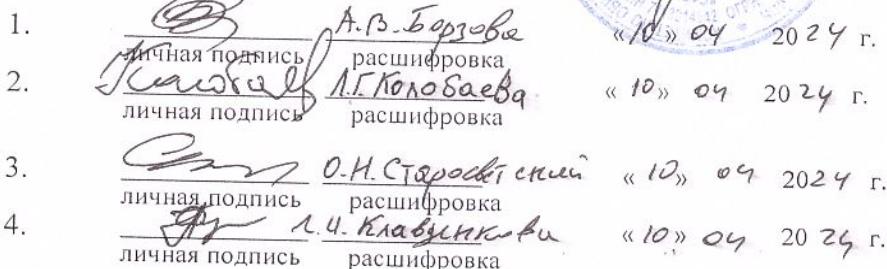 1. А.В. Борзова «10» 04 2024 г.
личная подпись расшифровка
2. Л.Г. Колобаева «10» 04 2024 г.
личная подпись расшифровка
3. О.Н. Старосветский «10» 04 2024 г.
личная подпись расшифровка
4. «10» 04 2024 г.
личная подпись расшифровка